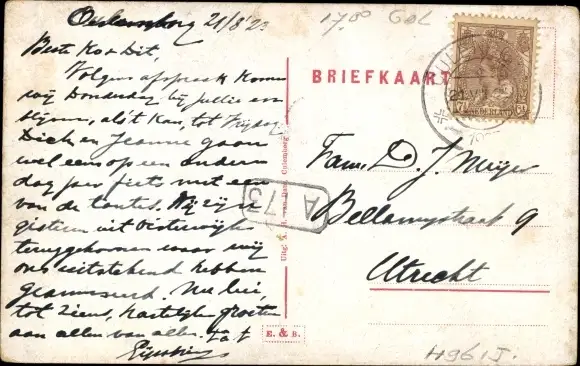 Culemborg 21/8 '23
17,80 GOL
Beste Ko & Dit,
Volgens afspraak komen
wij Donderdag bij jullie en
blijven, als 't kan, tot Vrijdag
Dick en Jeanne gaan
wel eens op een anderen
dag per fiets met een
van de tantes. Wij zijn
gisteren uit Oisterwijk
teruggekomen waar wij
ons uitstekend hebben
geamuseerd. Nu lui,
tot ziens, hartelijke groeten
aan allen van allen.
BRIEFKAART
7½ Ct
NEDERLAND
Fam. D. J. Meijer
Bellamystraat 9
Utrecht
A 73
Culemborg
E. & B.
H96IJ.